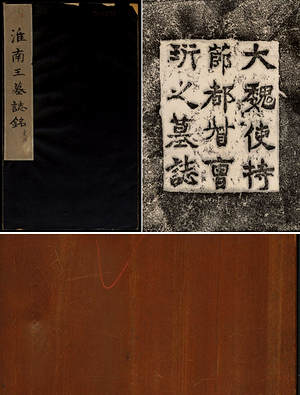 淮南王墓誌銘
大魏使持
節都督
之墓誌